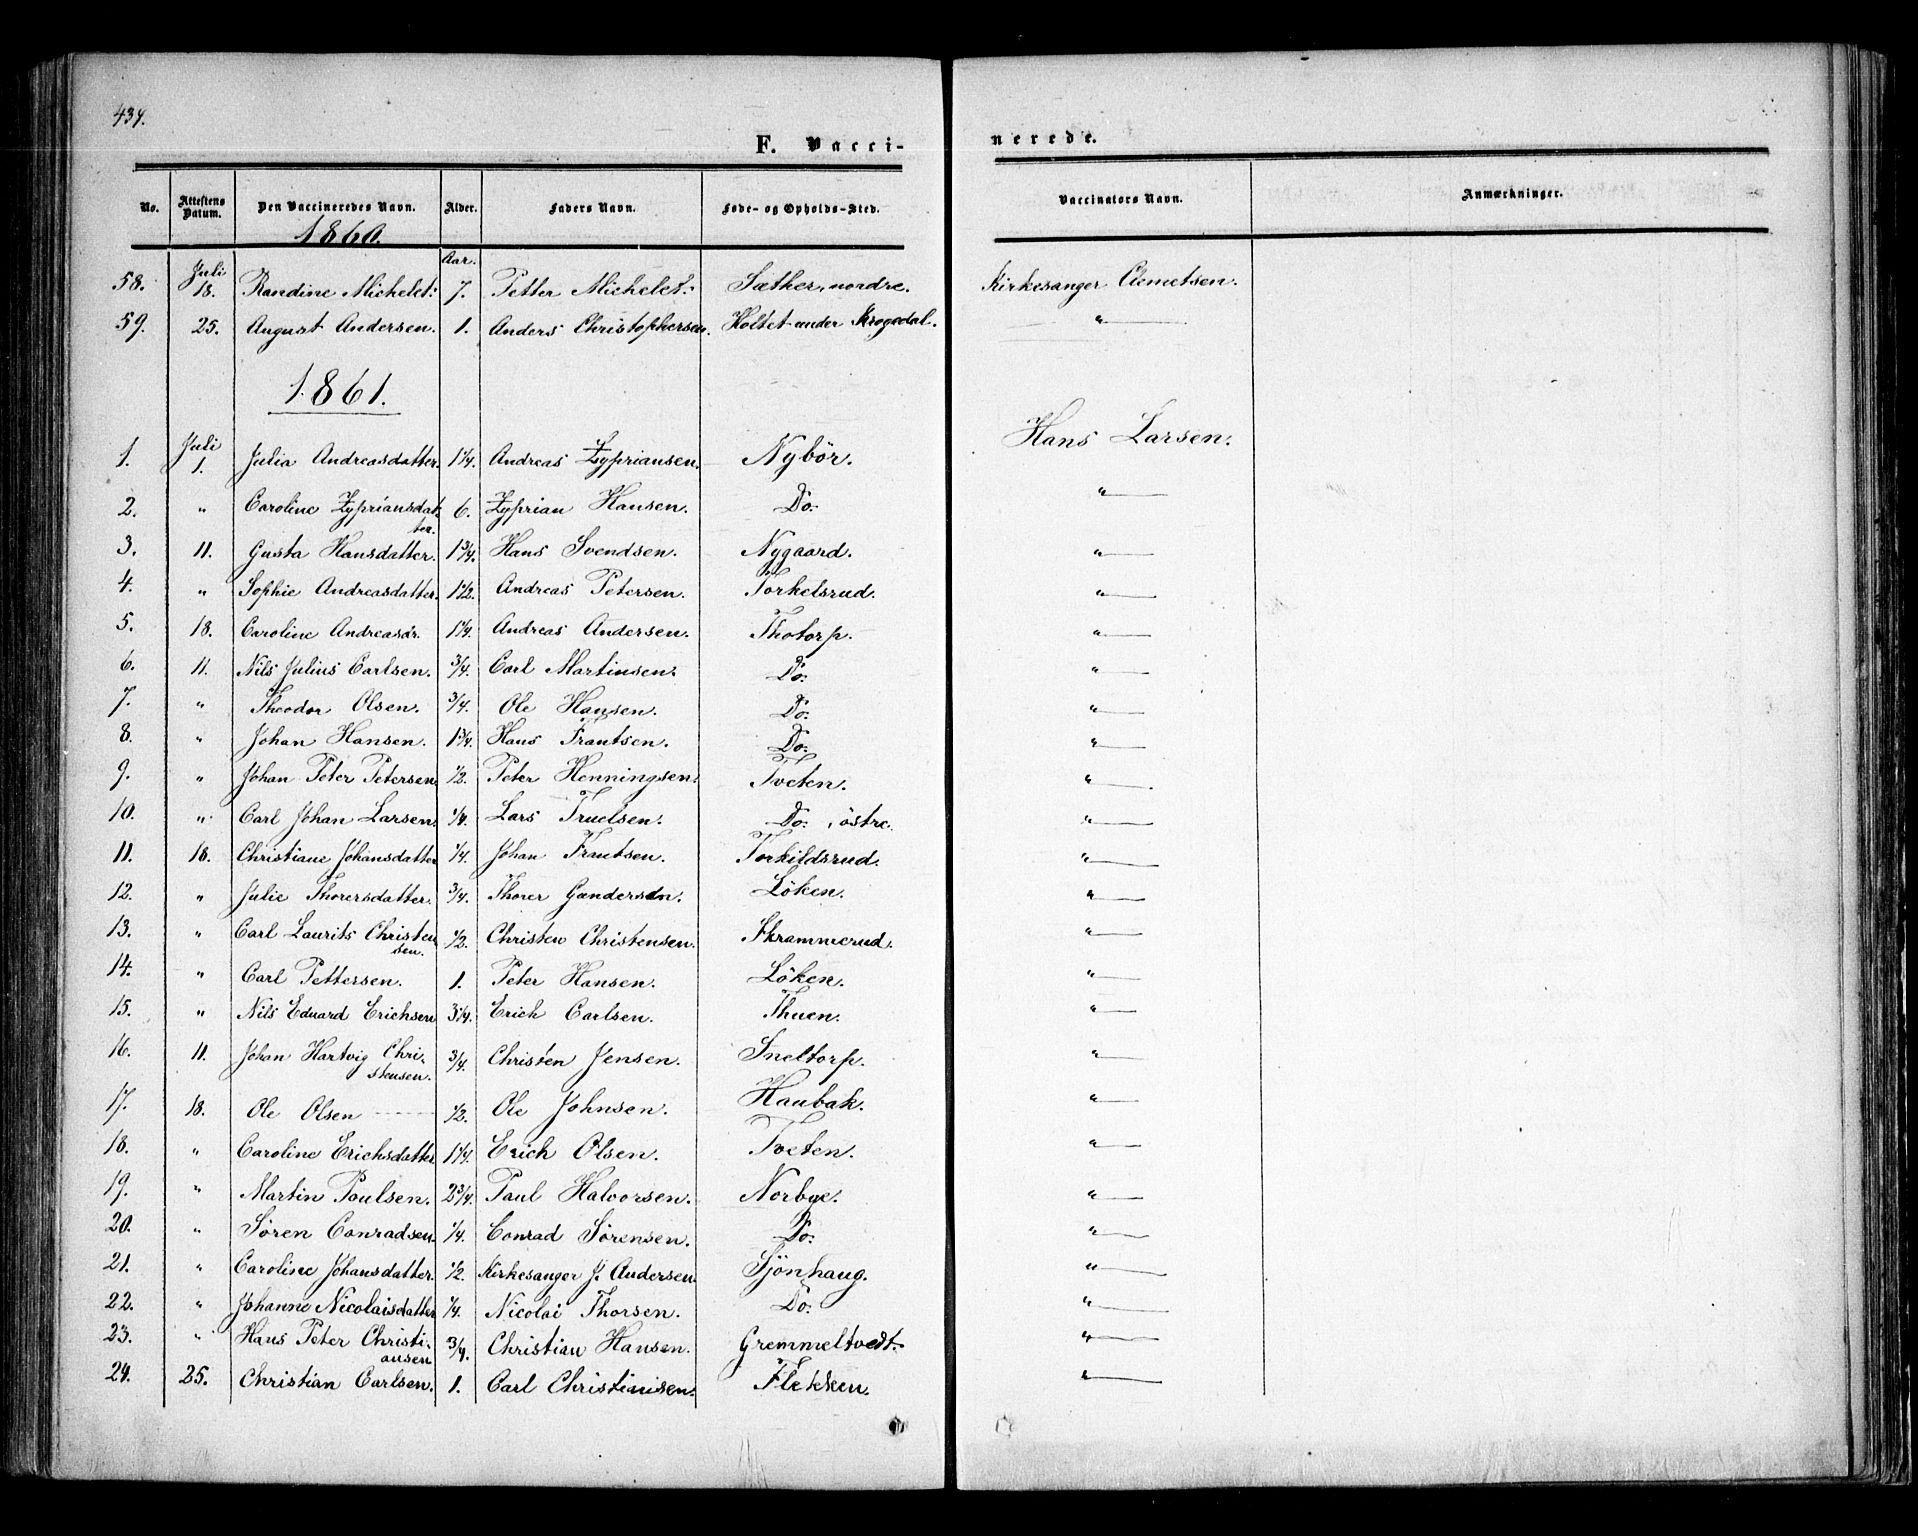 434.
F. Vacci-
nerede.
No. Attestens Datum. Den Vaccineredes Navn. Alder. Faders Navn. Føde- og Opholds-Sted. Vaccinators Navn. Anmærkninger.
1860.
Aar.
58. Juli 18. Randine Michelet: 7. Petter Michelet: Sæther, nordre. Kirkesanger Clemetsen.
59. 25. August Andersen. 1. Anders Christophersen. Holtet under Krogedal. "
1861.
1. Juli 1. Julia Andreasdatter. 1 1/4. Andreas Zypriansen. Nybör. Hans Larsen.
2. " Caroline Zypriansdatter. 6. Zyprian Hansen. Do. "
3. 11. Gusta Hansdatter. 1 3/4. Hans Svendsen. Nygaard. "
4. " Sophie Andreasdatter. 1 1/2. Andreas Petersen. Torkelsrud. "
5. 18. Caroline Andreasdr. 1 1/4. Andreas Andersen. Thotorp. "
6. 11. Nils Julius Carlsen. 3/4. Carl Martinsen. Do. "
7. " Theodor Olsen. 3/4. Ole Hansen. Do. "
8. " Johan Hansen. 1 3/4. Hans Frantsen. Do. "
9. " Johan Peter Petersen. 1/2. Peter Henningsen. Tveten. "
10. " Carl Johan Larsen. 1/4. Lars Truelsen. Do. , östre. "
11. 18. Christiane Johansdatter 1/4. Johan Frantsen. Torkildsrud. "
12. " Julie Thorersdatter. 3/4. Thorer Gundersen. Löken. "
13. " Carl Laurits Christensen. 1/2. Christen Christensen. Skrammerud. "
14. " Carl Pettersen. 1. Peter Hansen. Löken. "
15. " Nils Eduard Erichsen 3 1/4. Erich Carlsen. Thuen. "
16. 11. Johan Hartvig Christensen. 3/4. Christen Jensen. Sneltorp. "
17. 18. Ole Olsen 1/2. Ole Johnsen. Haubak. "
18. " Caroline Erichsdatter 1 1/4. Erich Olsen. Tveten. "
19. " Martin Poulsen. 2 3/4. Paul Halvorsen. Norbye. "
20. " Søren Conradsen. 1/4. Conrad Sørensen. Do. "
21. " Caroline Johansdatter. 1/2. Kirkesanger J. Andersen. Sjönhaug. "
22. " Johanne Nicolaisdatter 1/4. Nicolai Thorsen. Do. "
23. " Hans Peter Christiansen 3/4. Christian Hansen. Gremmeltvedt. "
24. 25. Christian Carlsen. 1. Carl Christiansen. Flekken. "